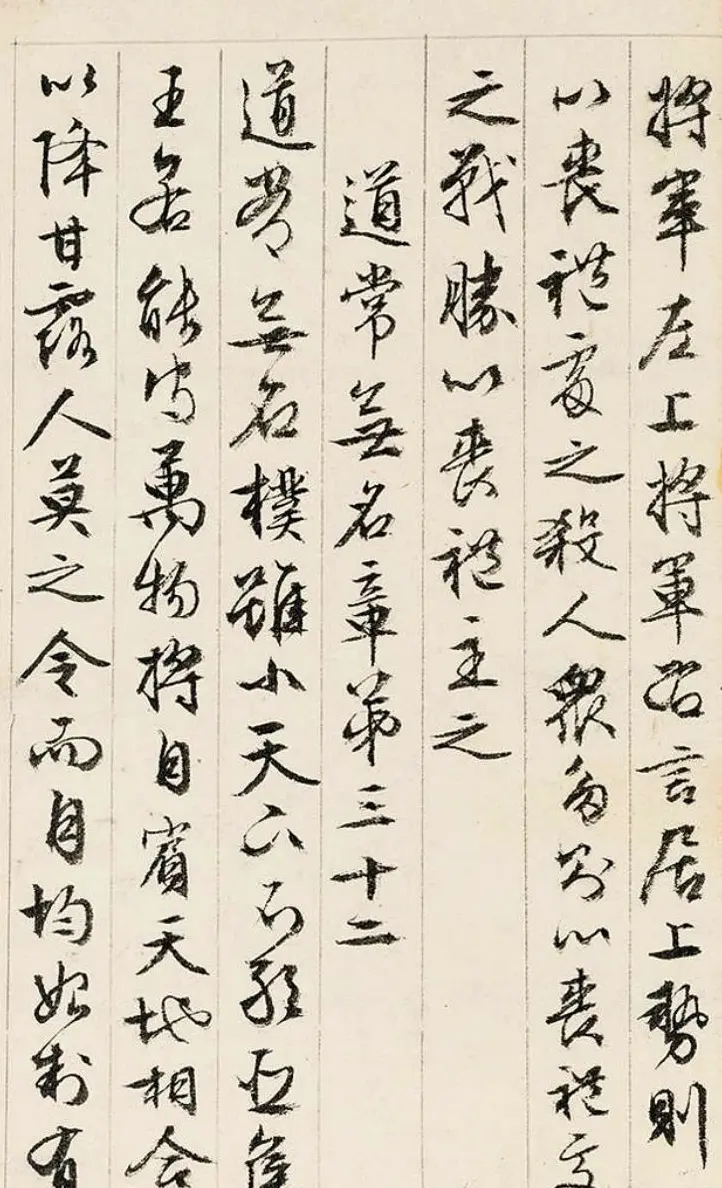 將軍左上將軍右言居上勢則
以喪禮處之殺人衆多則以喪禮處
之戰勝以喪禮主之
道常無名章第三十二
道常無名樸雖小天下不敢臣侯
王若能守萬物將自賓天地相合
以降甘露人莫之令而自均始制有